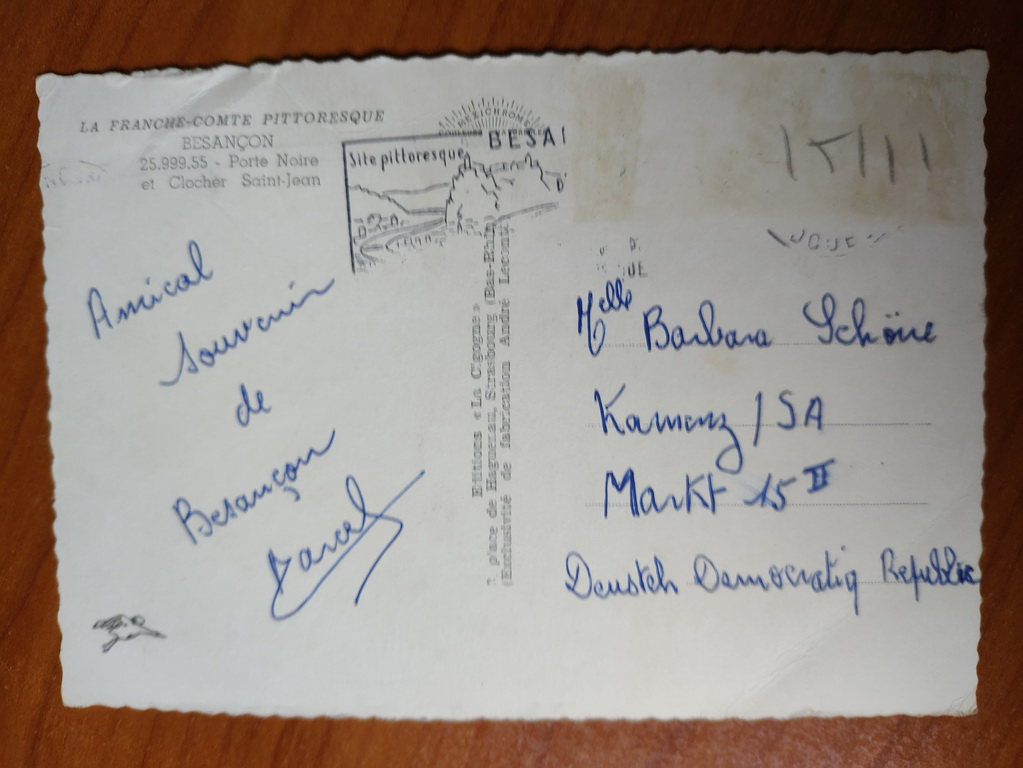 LA FRANCHE-COMTE PITTORESQUE
BESANÇON
25.999.55 - Porte Noire
et Clocher Saint-Jean
MEXICHROME
BESA
Site pittoresque
Amical
Souvenir
de
Besançon
Marcel
Editions « La Cigogne »
place de Haguenau, Strasbourg (Bas-Rhin)
(Exclusivité de fabrication André Leconte)
Melle Barbara Schöne
Kamenz / SA
Markt 15 II
Deustch Democratiq Republic